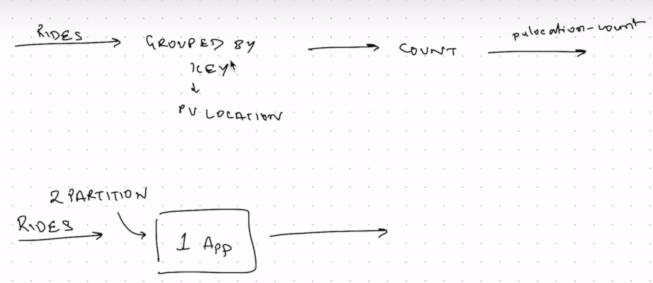 RIDES
GROUPED BY
KEY
PU LOCATION
COUNT
pulocation-count
2 PARTITION
RIDES
1 App